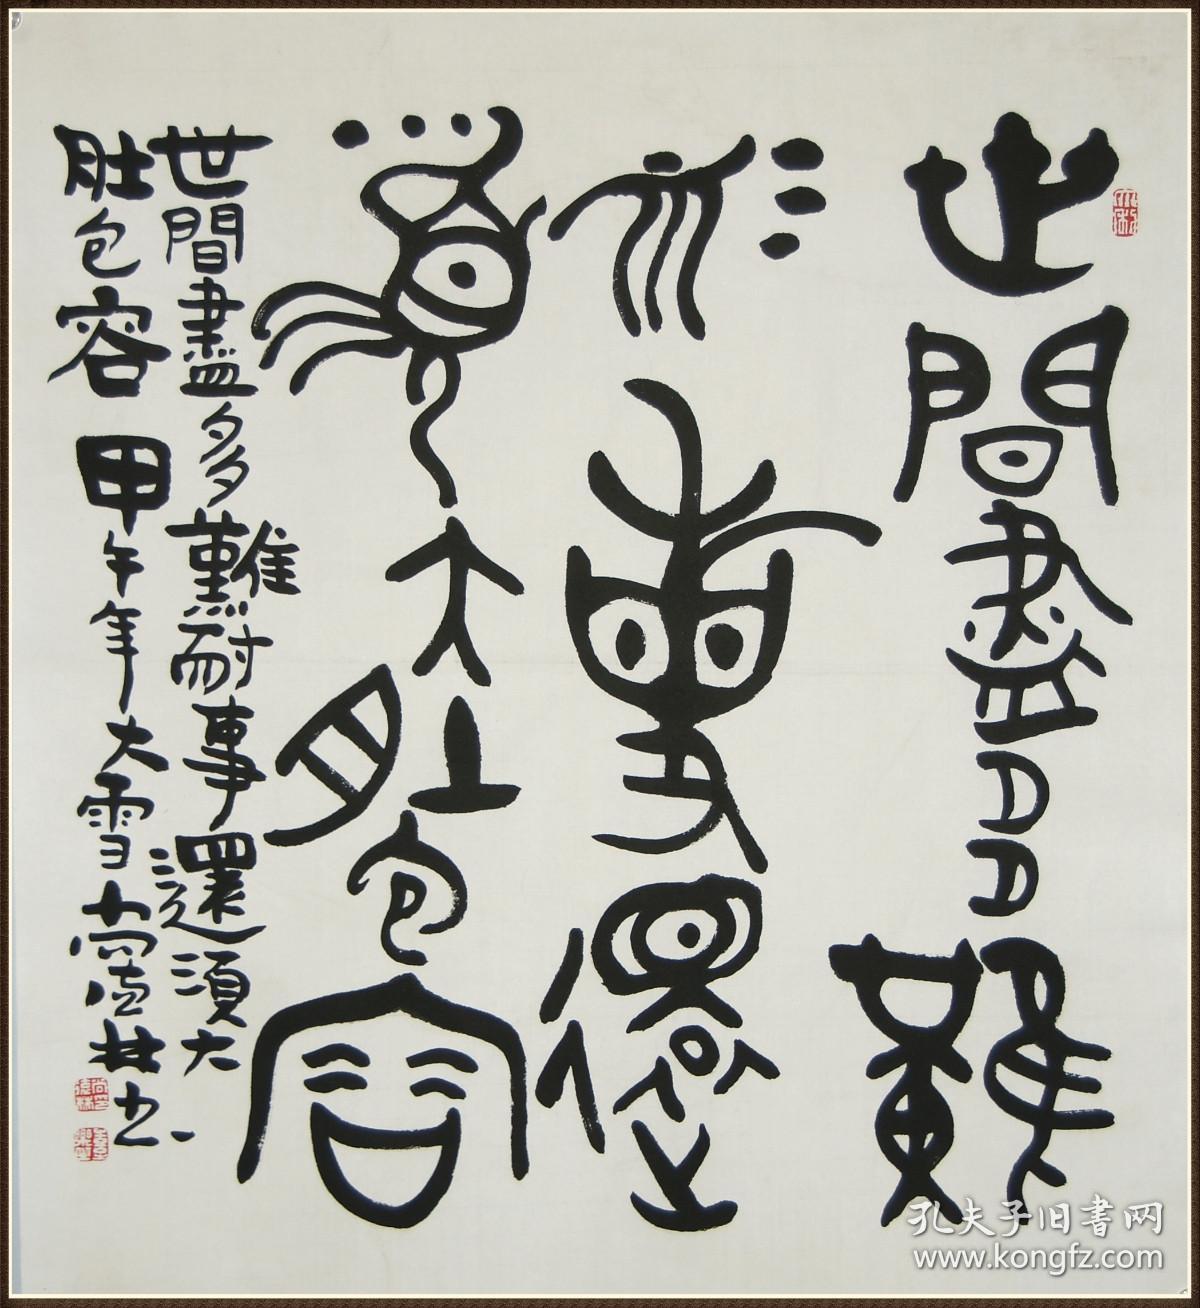 世間盡多難
耐事還
須大肚包容
世間盡多難耐事還須大
肚包容 甲午年大雪尚德林书
孔夫子旧書网
www.kongfz.com